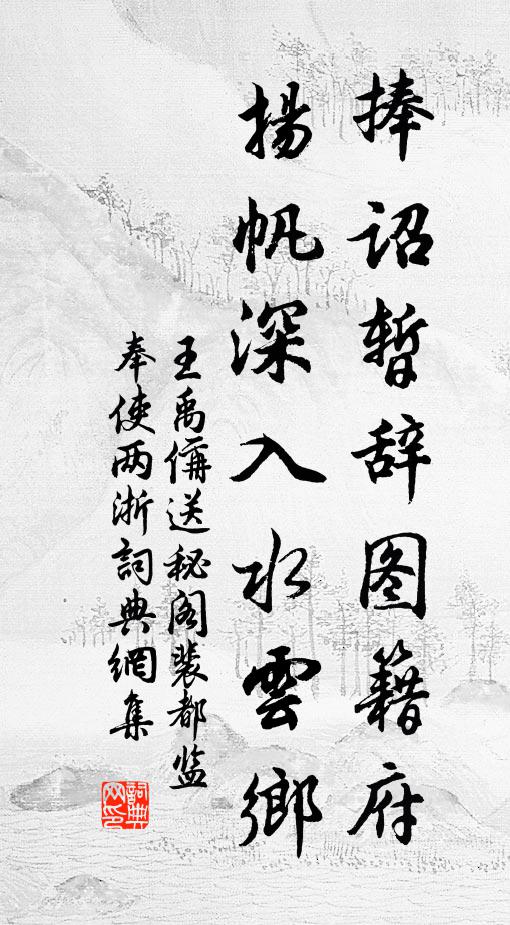 捧诏暂辞图籍府
揚帆深入水雲鄉
王禹偁送秘阁裴都监
奉使两浙詞典網集
詞典网印